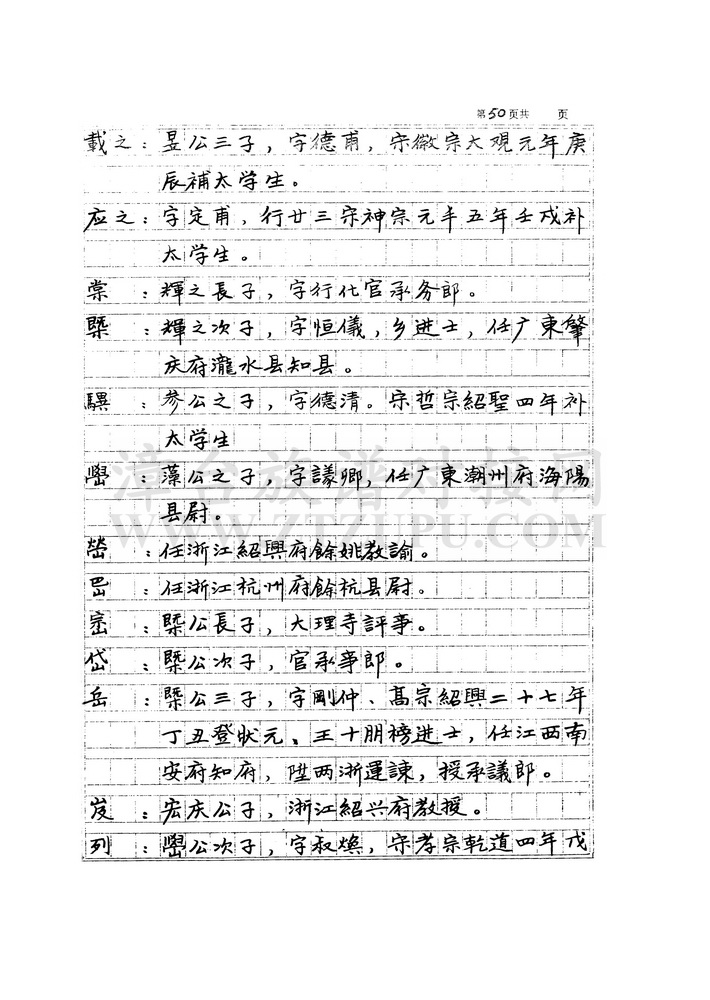 第50页共 页
載之：昱公三子，字德甫，宋徽宗大观元年庚
辰補太学生。
应之：字定甫，行廿三宋神宗元丰五年壬戌补
太学生。
棠：輝之長子，字行化官承务郎。
槩：輝之次子，字恒儀，乡进士，任广東肇
庆府瀧水县知县。
騏：參公之子，字德清。宋哲宗紹聖四年补
太学生
藻公之子，字謙卿，任广東潮州府海陽
县尉。
任浙江紹興府餘姚教諭。
任浙江杭州府餘杭县尉。
密：槩公長子，大理寺評事。
岱：槩公次子，官承事郎。
岳：槩公三子，字剛仲、高宗紹興二十七年
丁丑登狀元、王十朋榜进士，任江西南
安府知府，陞两浙運諫，授承議郎。
岌：宏庆公子，浙江紹兴府教授。
列：公次子，字叔煥，宋孝宗乾道四年戊
漳台族谱对接网
WWW.ZTZUPU.COM